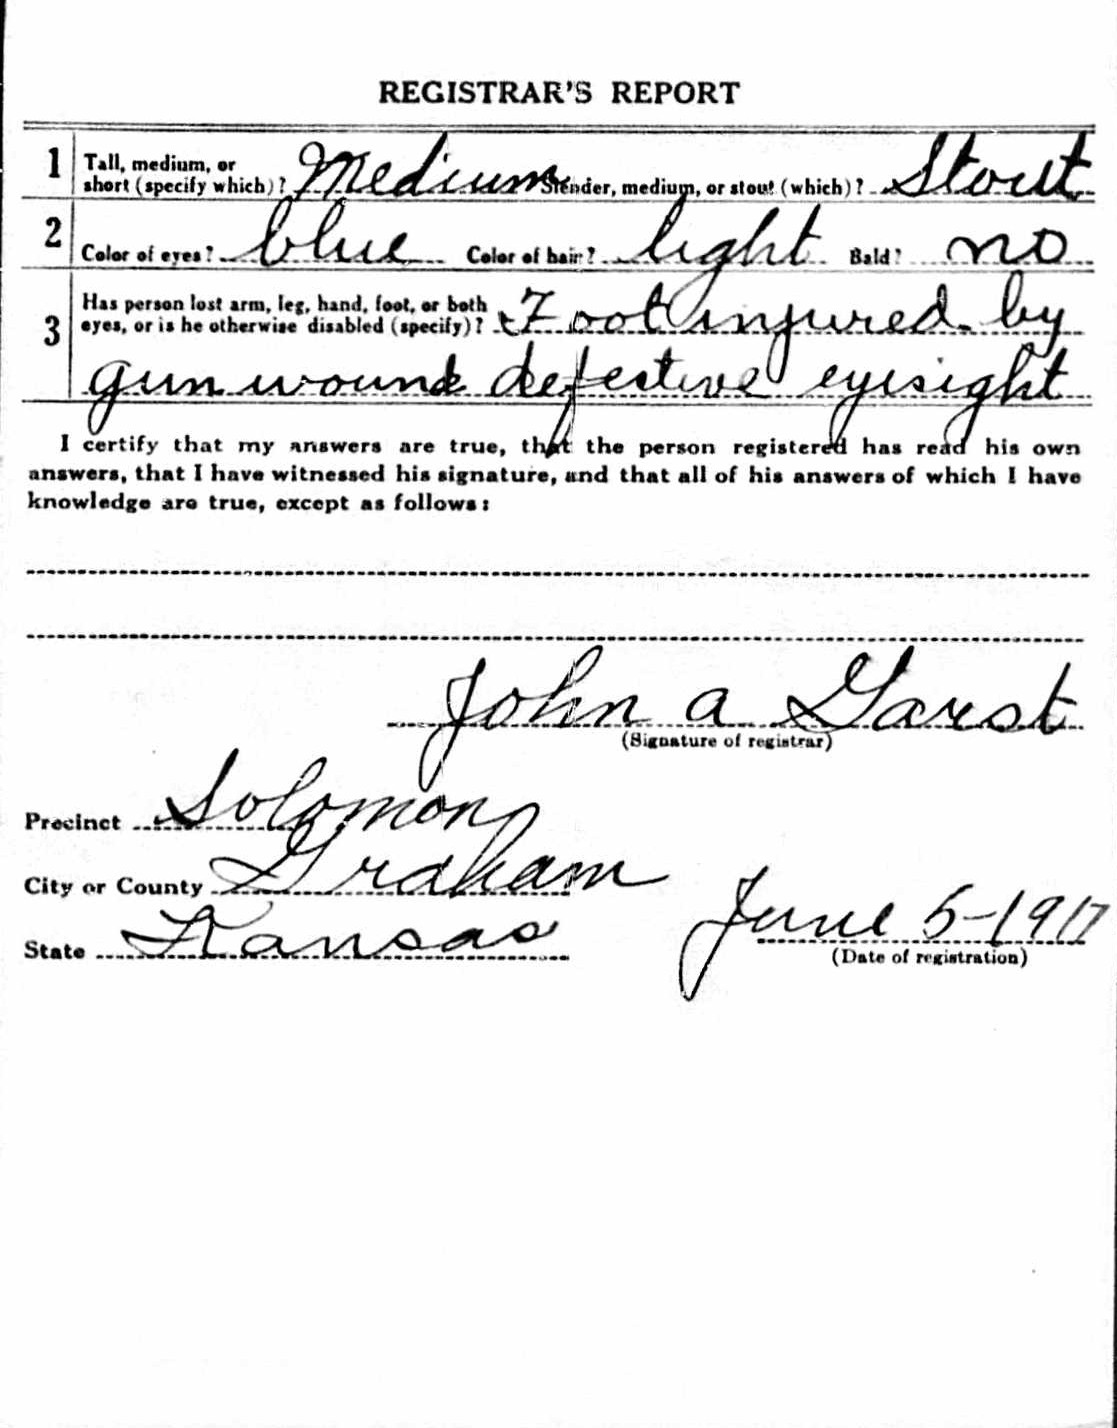 REGISTRAR'S REPORT
1 Tall, medium, or short (specify which)? Medium Slender, medium, or stout (which)? Stout
2 Color of eyes? blue Color of hair? light Bald? no
3 Has person lost arm, leg, hand, foot, or both eyes, or is he otherwise disabled (specify)? Foot injured by
gun wound defective eyesight
I certify that my answers are true, that the person registered has read his own
answers, that I have witnessed his signature, and that all of his answers of which I have
knowledge are true, except as follows:
John a Garst
(Signature of registrar)
Precinct Solomon
City or County Graham
State Kansas
June 5-1917
(Date of registration)